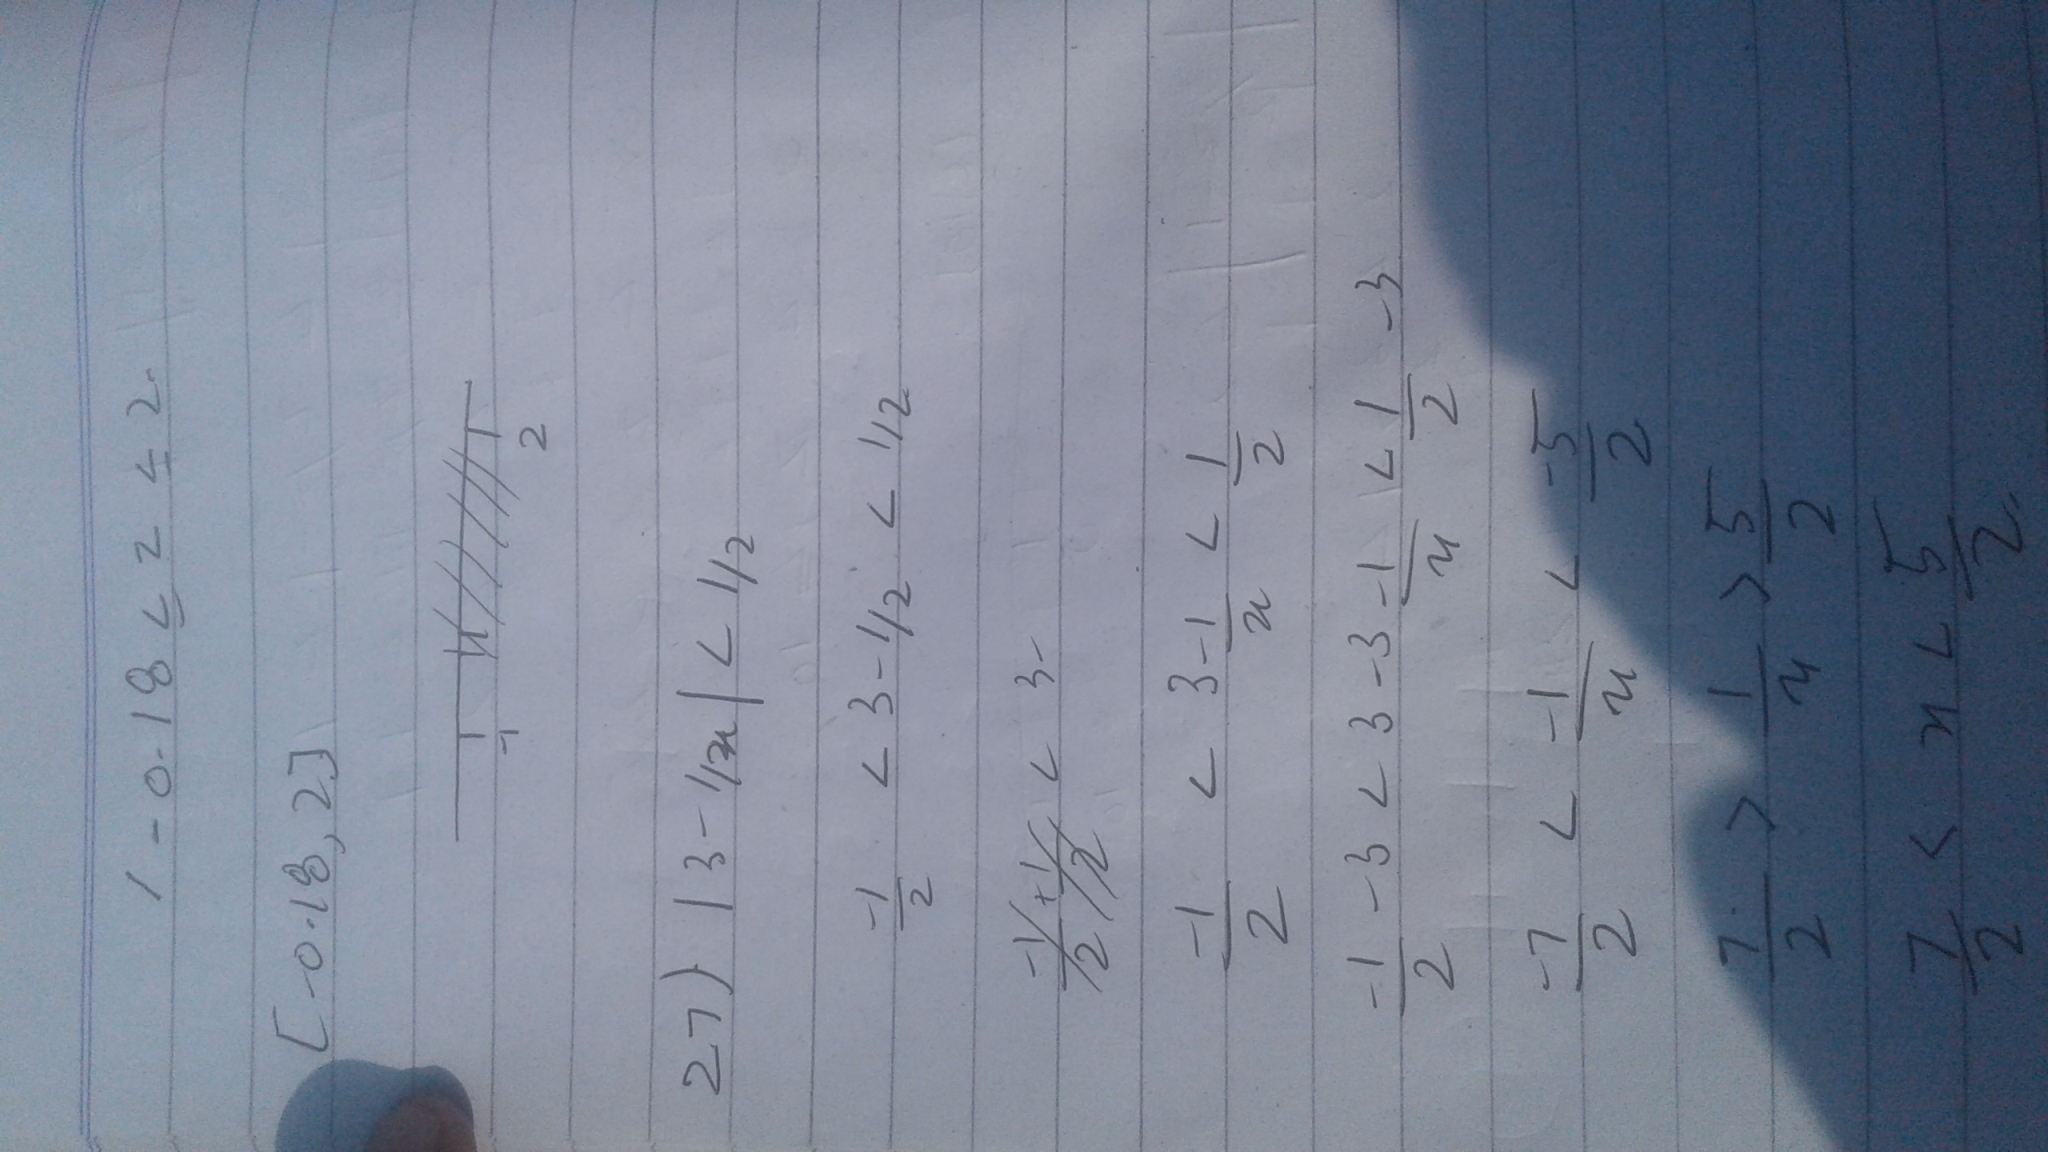 / -0.18 ≤ 2 ≤ 2.
[-0.18, 2]
-1 2
27) |3 - 1/x| < 1/2
-1/2 < 3 - 1/2 < 1/2
-1/2 + 1/2 < 3 -
-1/2 < 3 - 1/x < 1/2
-1/2 - 3 < 3 - 3 - 1/x < 1/2 - 3
-7/2 < -1/x < -5/2
7/2 > 1/x > 5/2
7/2 < x < 5/2